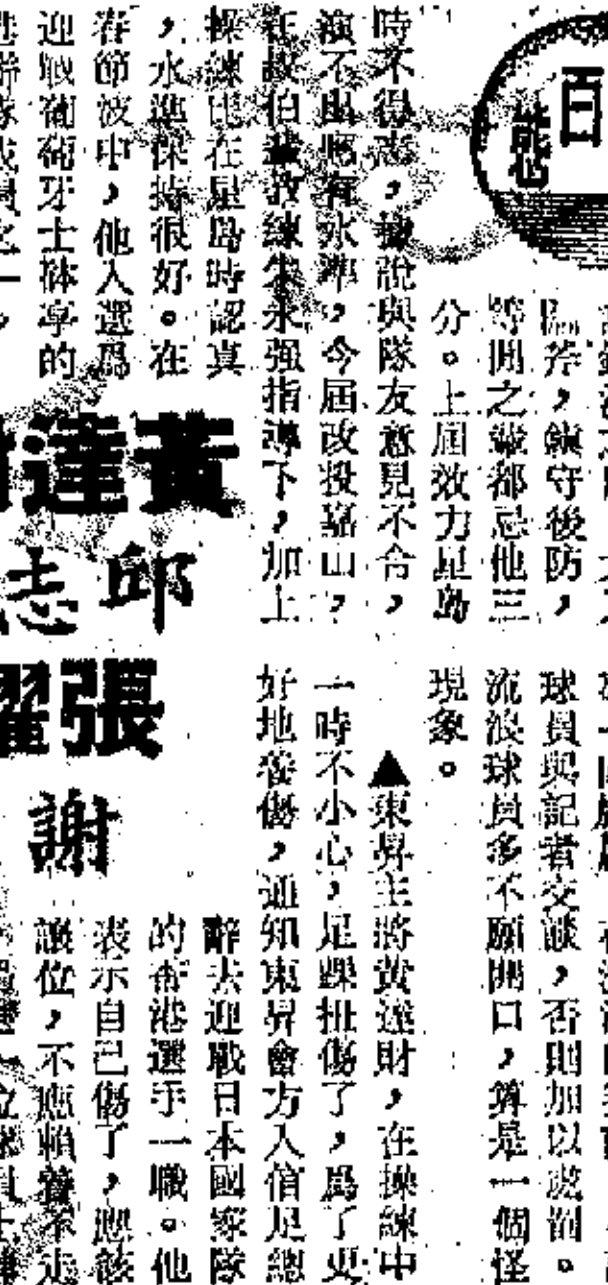 斧，鎮守後防，
等閒之輩都忌他三
分。上屆效力星島
時不得志，據說與隊友意見不合，
演不出應有水準，今屆改投嘉山，
教練朱永强指導下，加上
操練比在星島時認真
，水準保持很好。在
春節波中，他入選爲
迎戰葡萄牙士砵亭的
黃達
邱志
張
謝
球員與記者交談，否則加以處罰。
流浪球員多不願開口，算是一個怪
現象。
▲東昇主將黃達財，在操練中
一時不小心，足踝扭傷了，爲了更
好地養傷，通知東昇會方入信足總
辭去迎戰日本國家隊
的香港選手一職。他
表示自己傷了，應該
讓位，不應賴着不走